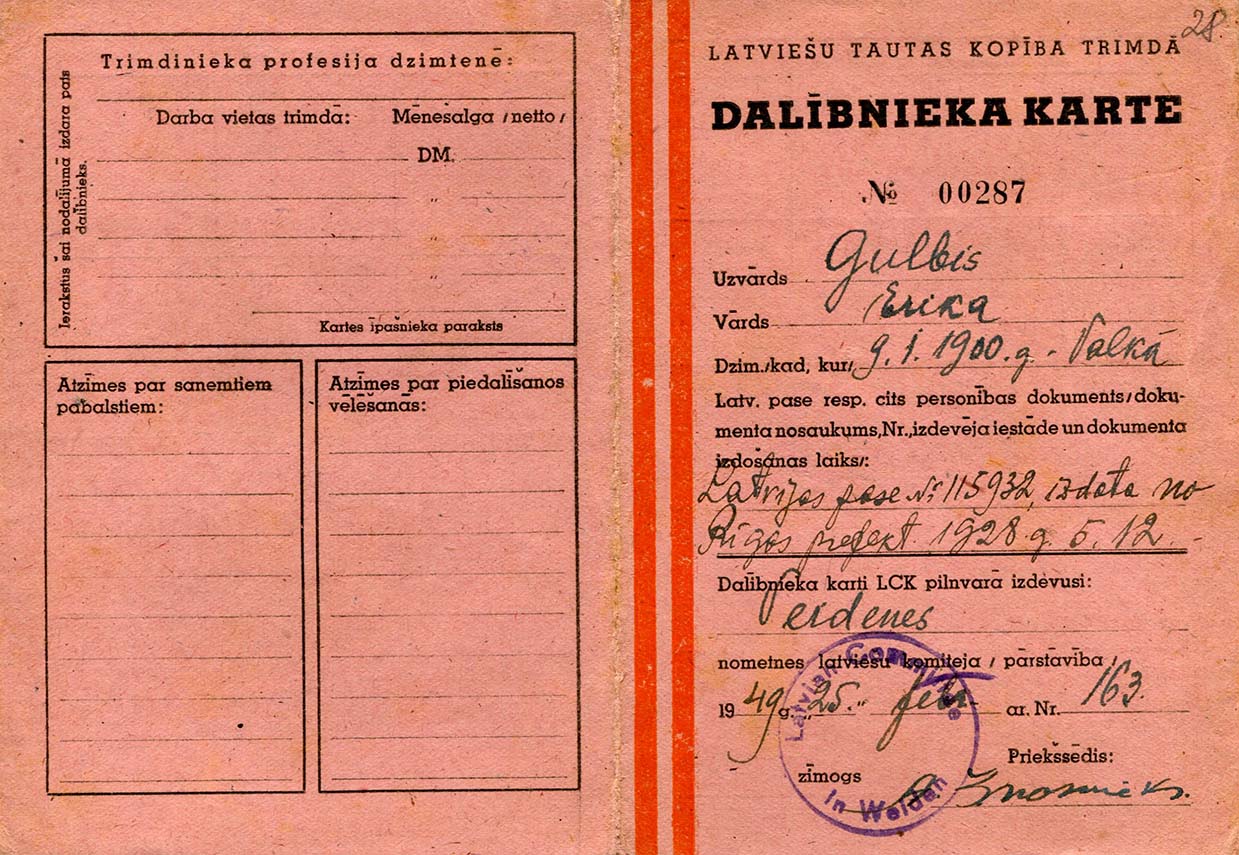 Trimdinieka profesija dzimtenē:
Darba vietas trimdā: Mēnešalga /netto/
DM.
"
"
"
Kartes īpašnieka paraksts
Ierakstus šai nodalījumā izdara pats
dalībnieks.
Atzīmes par saņemtiem
pabalstiem:
Atzīmes par piedalīšanos
vēlēšanās:
28.
LATVIEŠU TAUTAS KOPĪBA TRIMDĀ
DALĪBNIEKA KARTE
№ 00287
Uzvārds Gulbis
Vārds Erika
Dzim./kad, kur/ 9. 1. 1900. g. - Valkā
Latv. pase resp. cits personības dokuments/doku-
menta nosaukums, Nr., izdevēja iestāde un dokumenta
izdošanas laiks/:
Latvijas pase Nr 115932, izdota no
Rīgas prefekt. 1928. g. 5. 12. -
Dalībnieka karti LCK pilnvarā izdevusi:
Veidenes
nometnes latviešu komiteja / pārstāvība /
1949 g. 25. " febr. ar. Nr. 163.
Priekšsēdis:
zīmogs
Latvian Committee
in Weiden